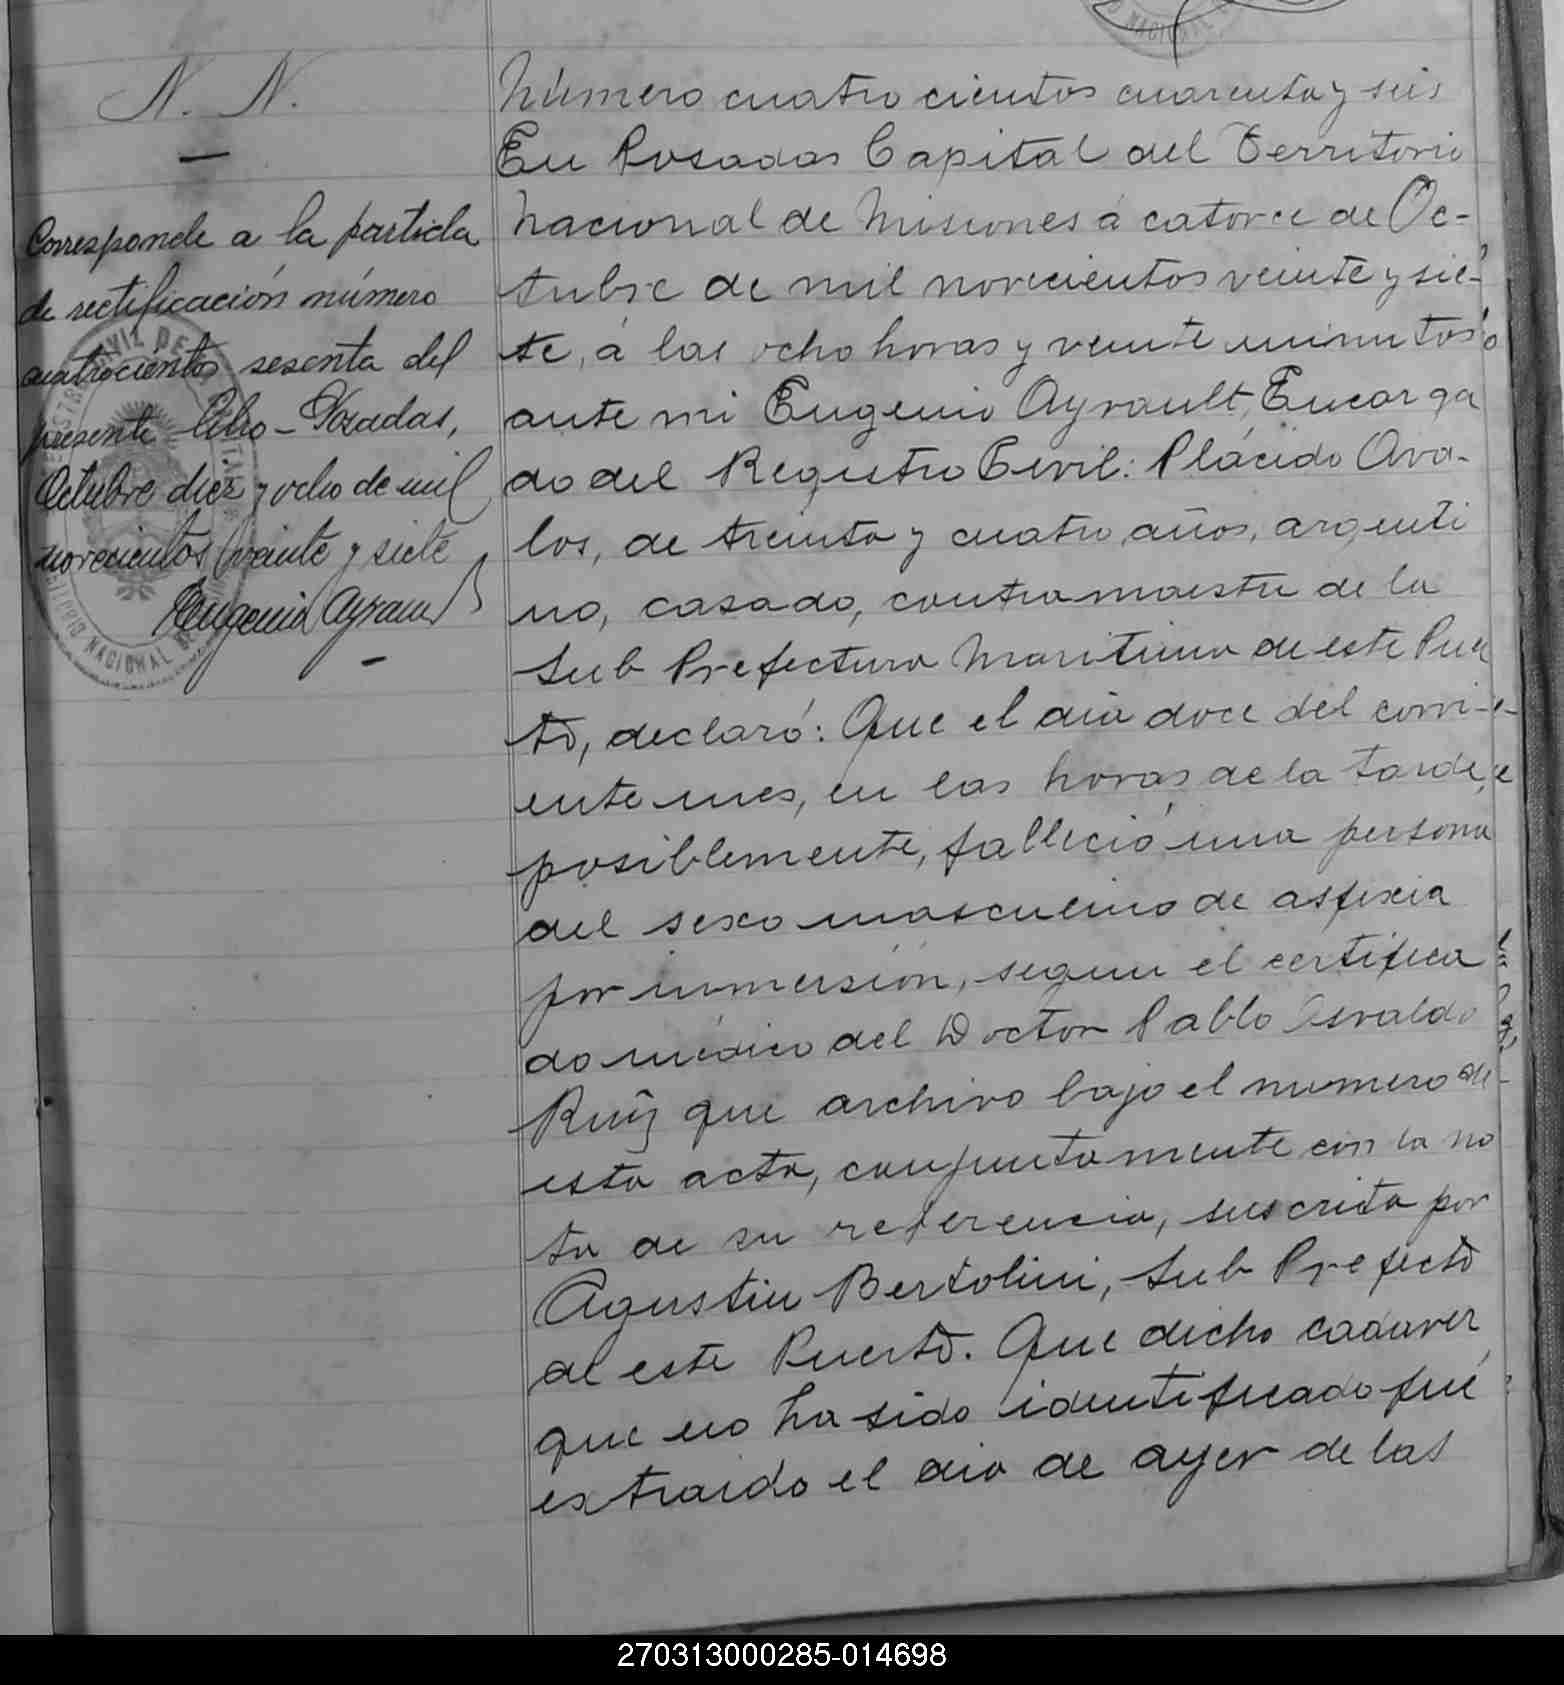 N. N.
Corresponde a la partida
de rectificación número
cuatrocientos sesenta del
presente libro - Posadas,
Octubre diez y ocho de mil
novecientos veinte y siete
Eugenio Ayrault
Número cuatrocientos cuarenta y seis
En Posadas Capital del Territorio
Nacional de Misiones á catorce de Oc-
tubre de mil novecientos veinte y sie-
te, á las ocho horas y veinte minutos
ante mi Eugenio Ayrault, Encarga
do del Registro Civil: Plácido Ava-
los, de treinta y cuatro años, argenti
no, casado, contramaestre de la
Sub Prefectura Maritima de este Puer
to, declaró: Que el dia doce del corri-
ente mes, en las horas de la tarde,
posiblemente, falleció una persona
del sexo masculino de asfixia
por inmersión, segun el certifica
do médico del Doctor Pablo Osvaldo
Ruiz que archivo bajo el numero de
esta acta, conjuntamente con la no
ta de su referencia, suscrita por
Agustin Bertolini, Sub Prefecto
de este Puerto. Que dicho cadaver
que no ha sido identificado fué
extraido el dia de ayer de las
270313000285-014698